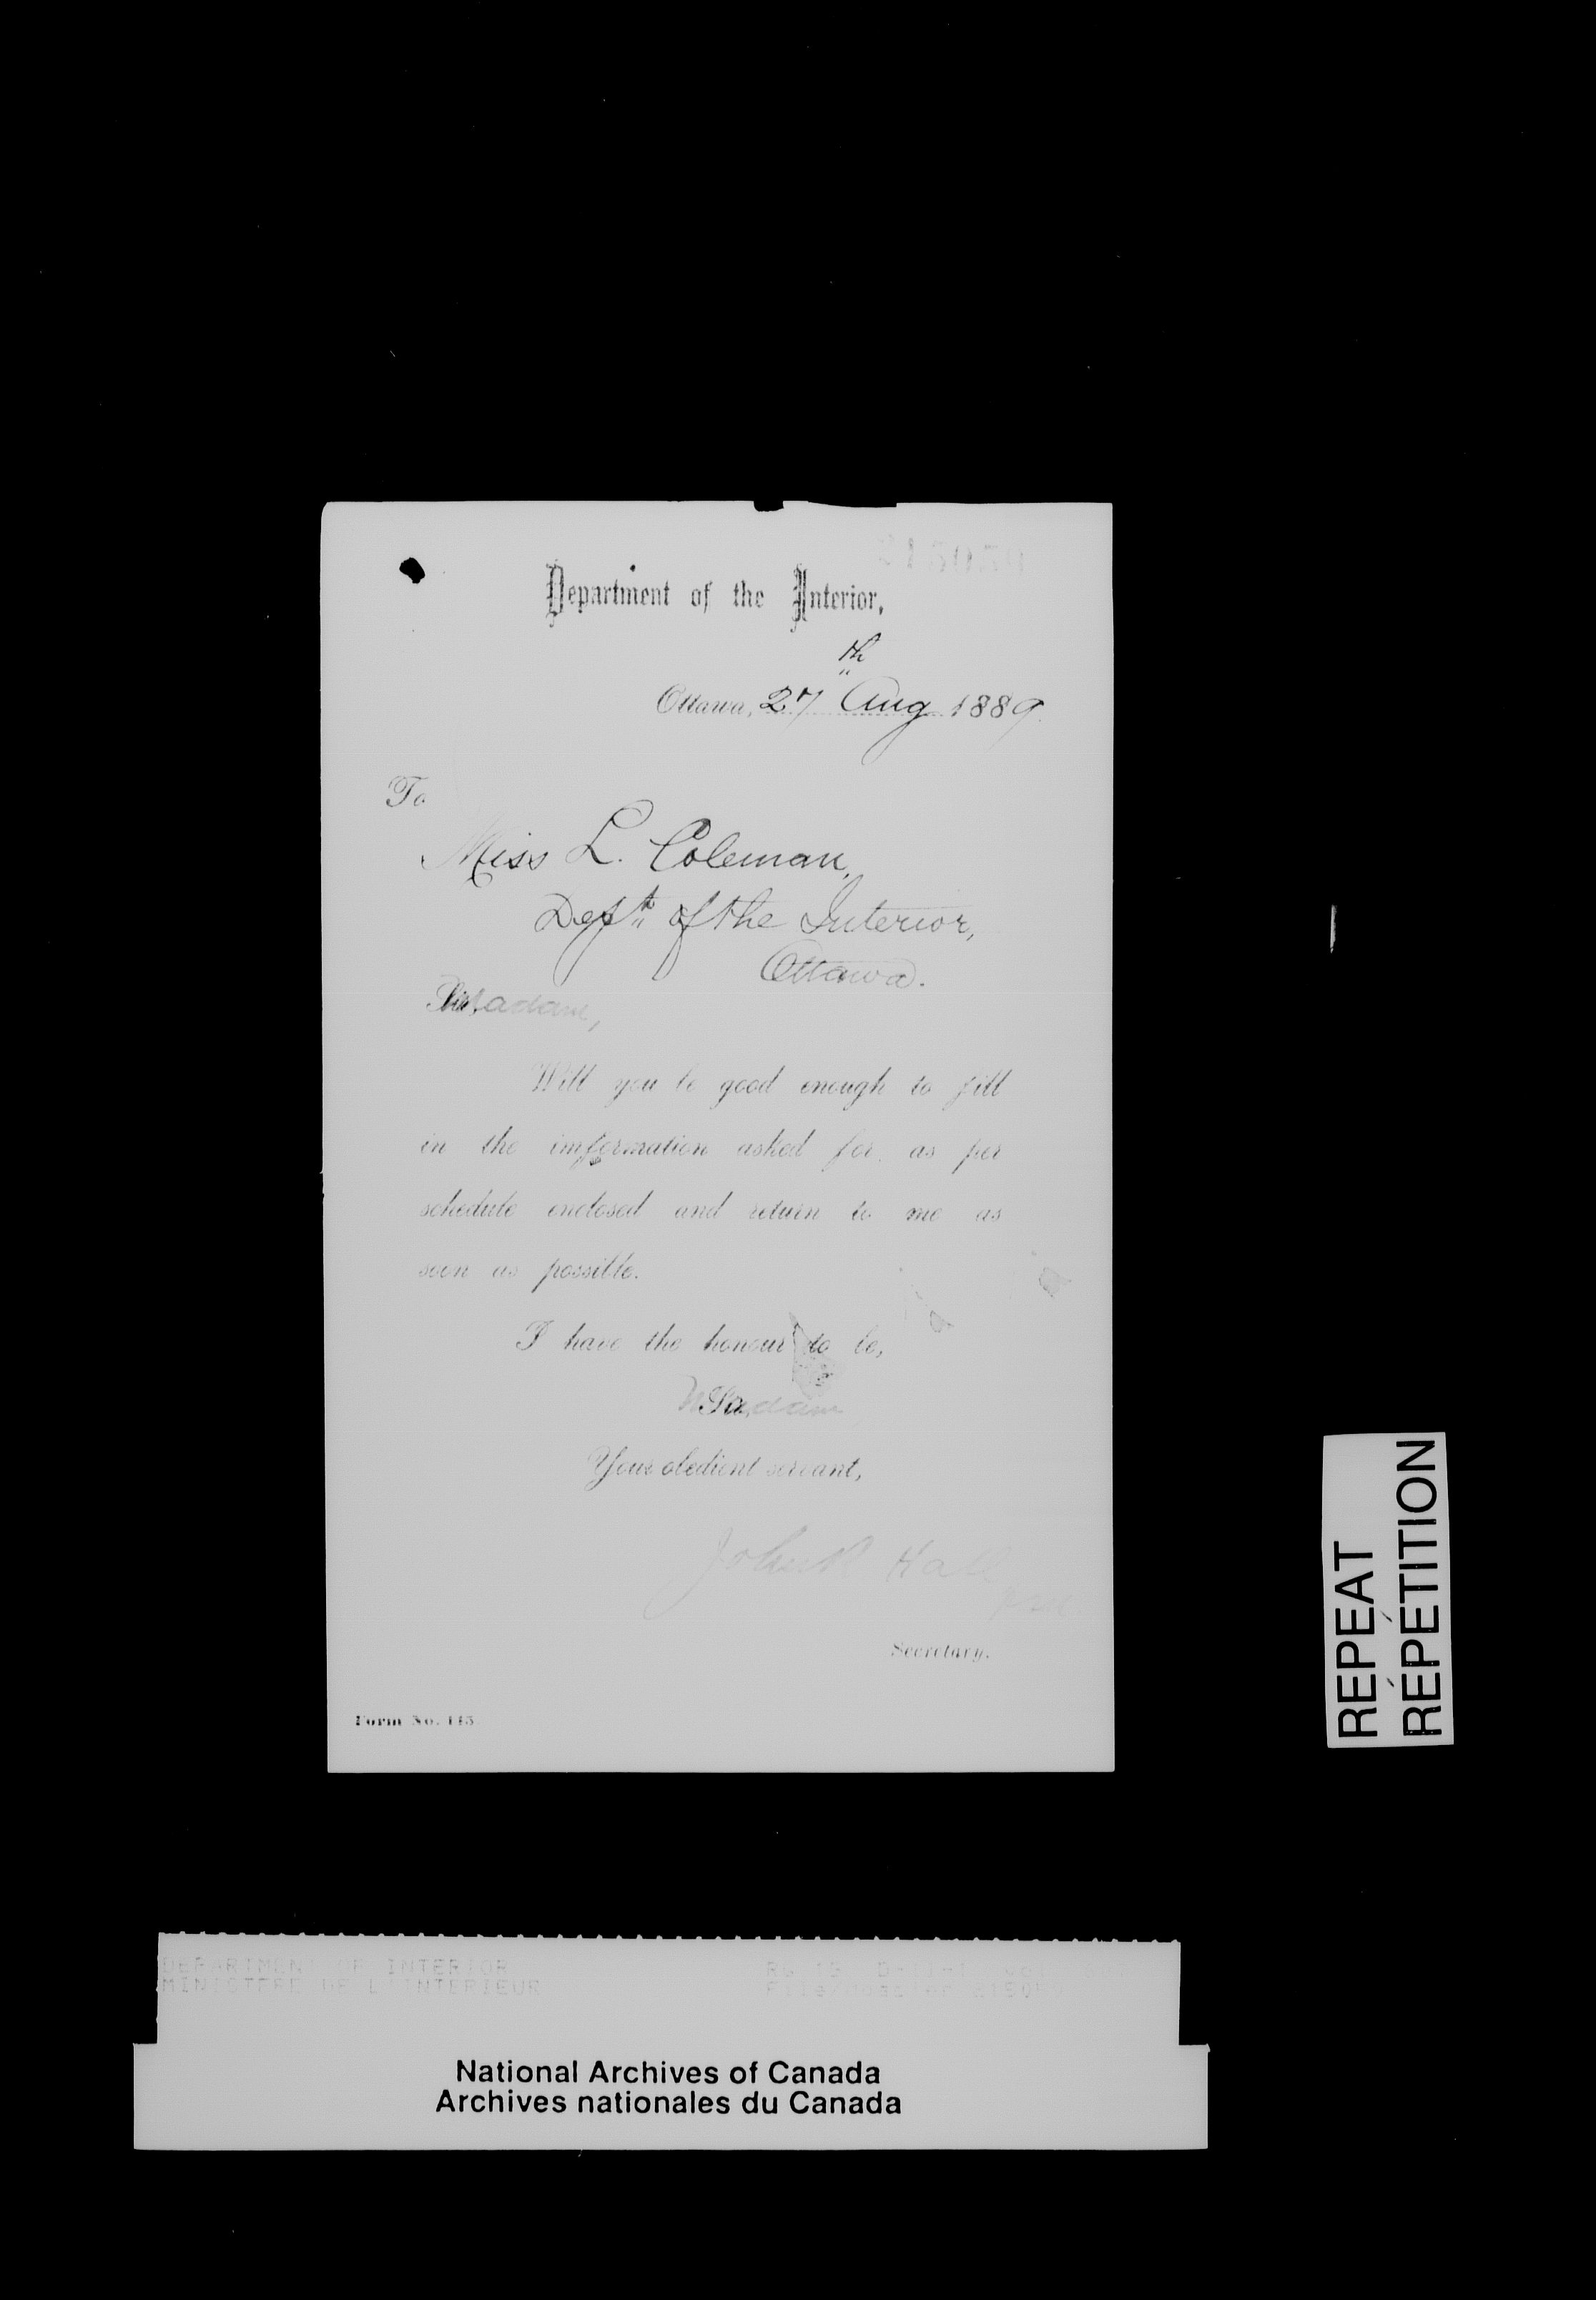 Department of the Interior,
Ottawa, 27th Aug 1889
To
Miss L. Coleman,
Dept of the Interior,
Ottawa.
Madam,
Will you be good enough to fill
in the imformation asked for, as per
schedule enclosed and return to me as
soon as possible.
I have the honour to be,
Madam
Your obedient servant,
John R Hall
Secretary.
Form No. 145
REPEAT
RÉPÉTITION
DEPARTMENT OF INTERIOR
MINISTERE DE L'INTERIEUR
RG 15 D-II-1
File/dossier
National Archives of Canada
Archives nationales du Canada